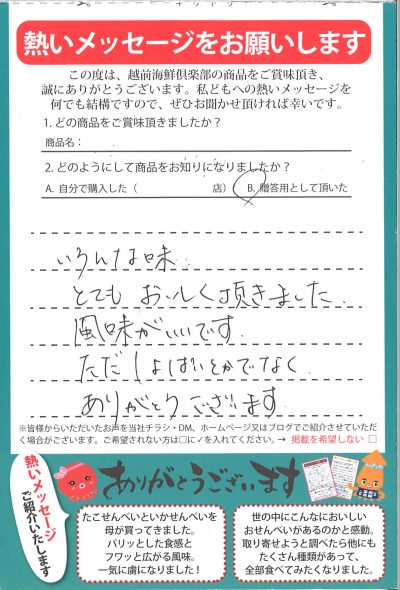 熱いメッセージをお願いします
この度は、越前海鮮倶楽部の商品をご賞味頂き、
誠にありがとうございます。私どもへの熱いメッセージを
何でも結構ですので、ぜひお聞かせ頂ければ幸いです。
1. どの商品をご賞味頂きましたか？
商品名：
2. どのようにして商品をお知りになりましたか？
A. 自分で購入した（　　　　　店） B. 贈答用として頂いた
いろんな味
とても おいしく頂きました.
風味がいいです.
ただしょぱいとかでなく
ありがとうございます
※皆様からいただいたお声を当社チラシ・DM、ホームページ又はブログでご紹介させていただ
く場合がございます。ご希望されない方は□に✓を入れてください。→ 掲載を希望しない □
熱いメッセージ
ご紹介いたします
ありがとうございます
たこせんべいといかせんべいを
母が買ってきました。
パリッとした食感と
フワッと広がる風味。
一気に虜になりました！
世の中にこんなにおいしい
おせんべいがあるのかと感動。
取り寄せようと調べたら他にも
たくさん種類があって、
全部食べてみたくなりました。